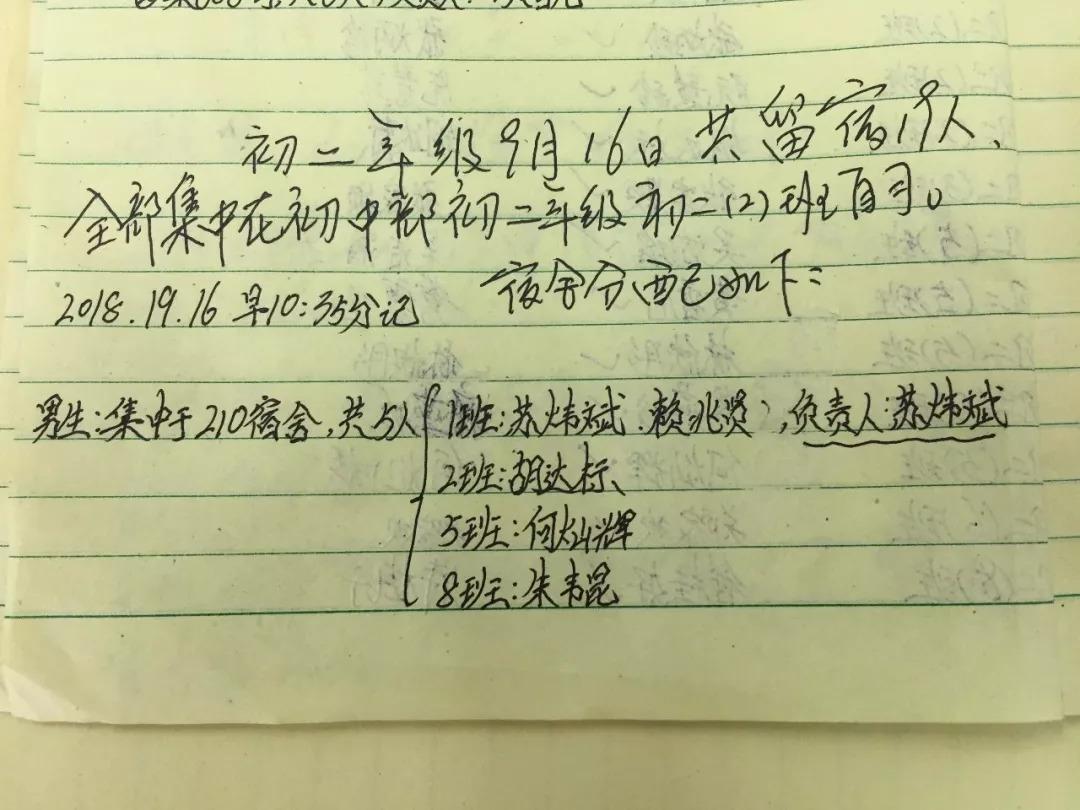 初二年级9月16日共留宿19人、
全部集中在初中部初二年级初二(2)班自习。
宿舍分配已如下:
2018.19.16 早10:35分记
男生:集中于210宿舍,共5人 1班:苏炜斌、赖兆贤,负责人:苏炜斌
2班:胡达标、
5班:何灿辉
8班:朱韦昆